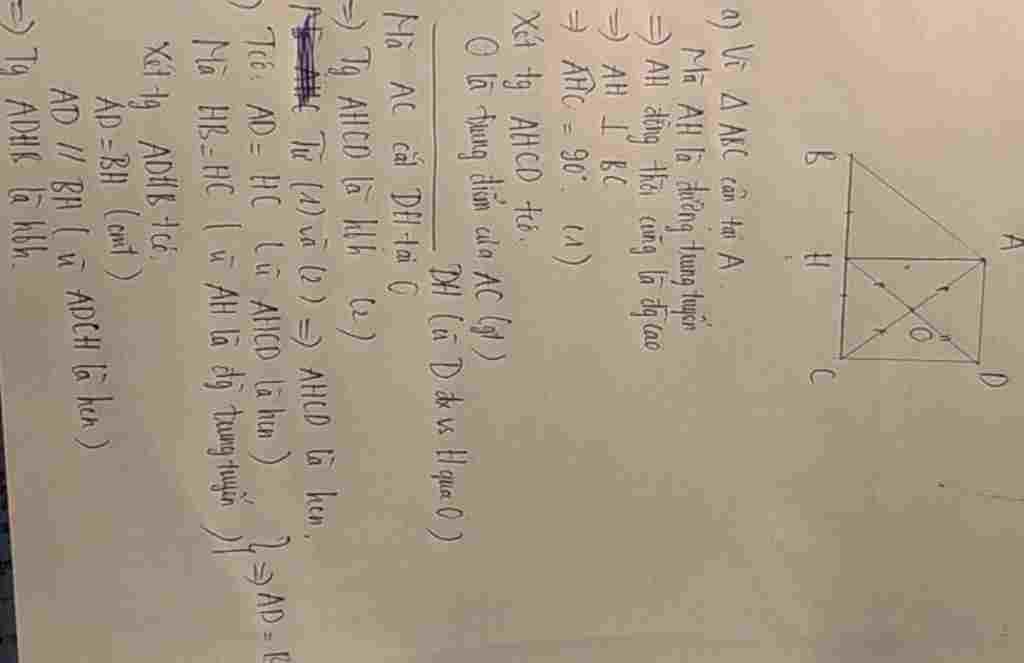 A
D
O
B
H
C
a) Vì Δ ABC cân tại A
Mà AH là đường trung tuyến
=> AH đồng thời cũng là đg cao
=> AH ⊥ BC
=> AHC = 90°. (1)
Xét tg AHCD tcó.
O là trung điểm của AC (gt)
DH (vì D đx vs H qua O)
Mà AC cắt DH tại O
=> Tg AHCD là hbh (2)
Từ (1) và (2) => AHCD là hcn.
) Tcó. AD = HC (vì AHCD là hcn)
Mà HB = HC (vì AH là đg trung tuyến)
} => AD = B
Xét tg ADHB tcó.
AD = BH (cmt)
AD // BH (vì ADCH là hcn)
=> Tg ADHB là hbh.